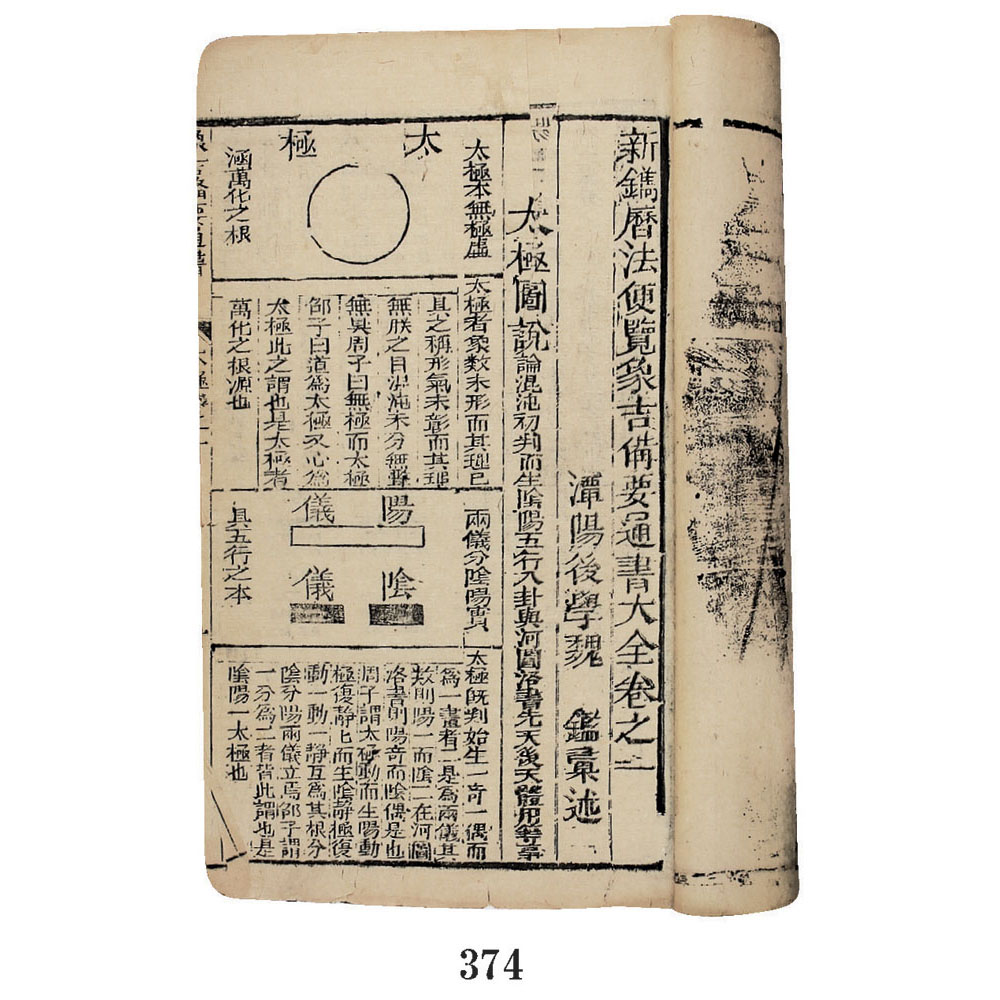 新鐫曆法便覽象吉備要通書大全卷之二
潭陽後學魏　鑑彙述
太極圖說論混沌初判而生陰陽五行八卦與河圖洛書先天後天體用等事
太極
太極本無極虛
涵萬化之根
太極者象数未形而其理已
具之稱形氣未彰而其理
無朕之目混沌未分無聲
無臭周子曰無極而太極
邵子曰道為太極又心為
太極此之謂也是太極者
萬化之根源也
兩儀分陰陽實
陽儀
陰儀
具五行之本
太極既判始生一奇一偶而
為一畫者二是為兩儀其
数則陽一而陰二在河圖
洛書則陽奇而陰偶是也
周子謂太極動而生陽動
極復靜七而生陰靜極復
動一動一靜互為其根分
陰分陽兩儀立焉邵子謂
一分為二者皆此謂也是
陰陽一太極也
374